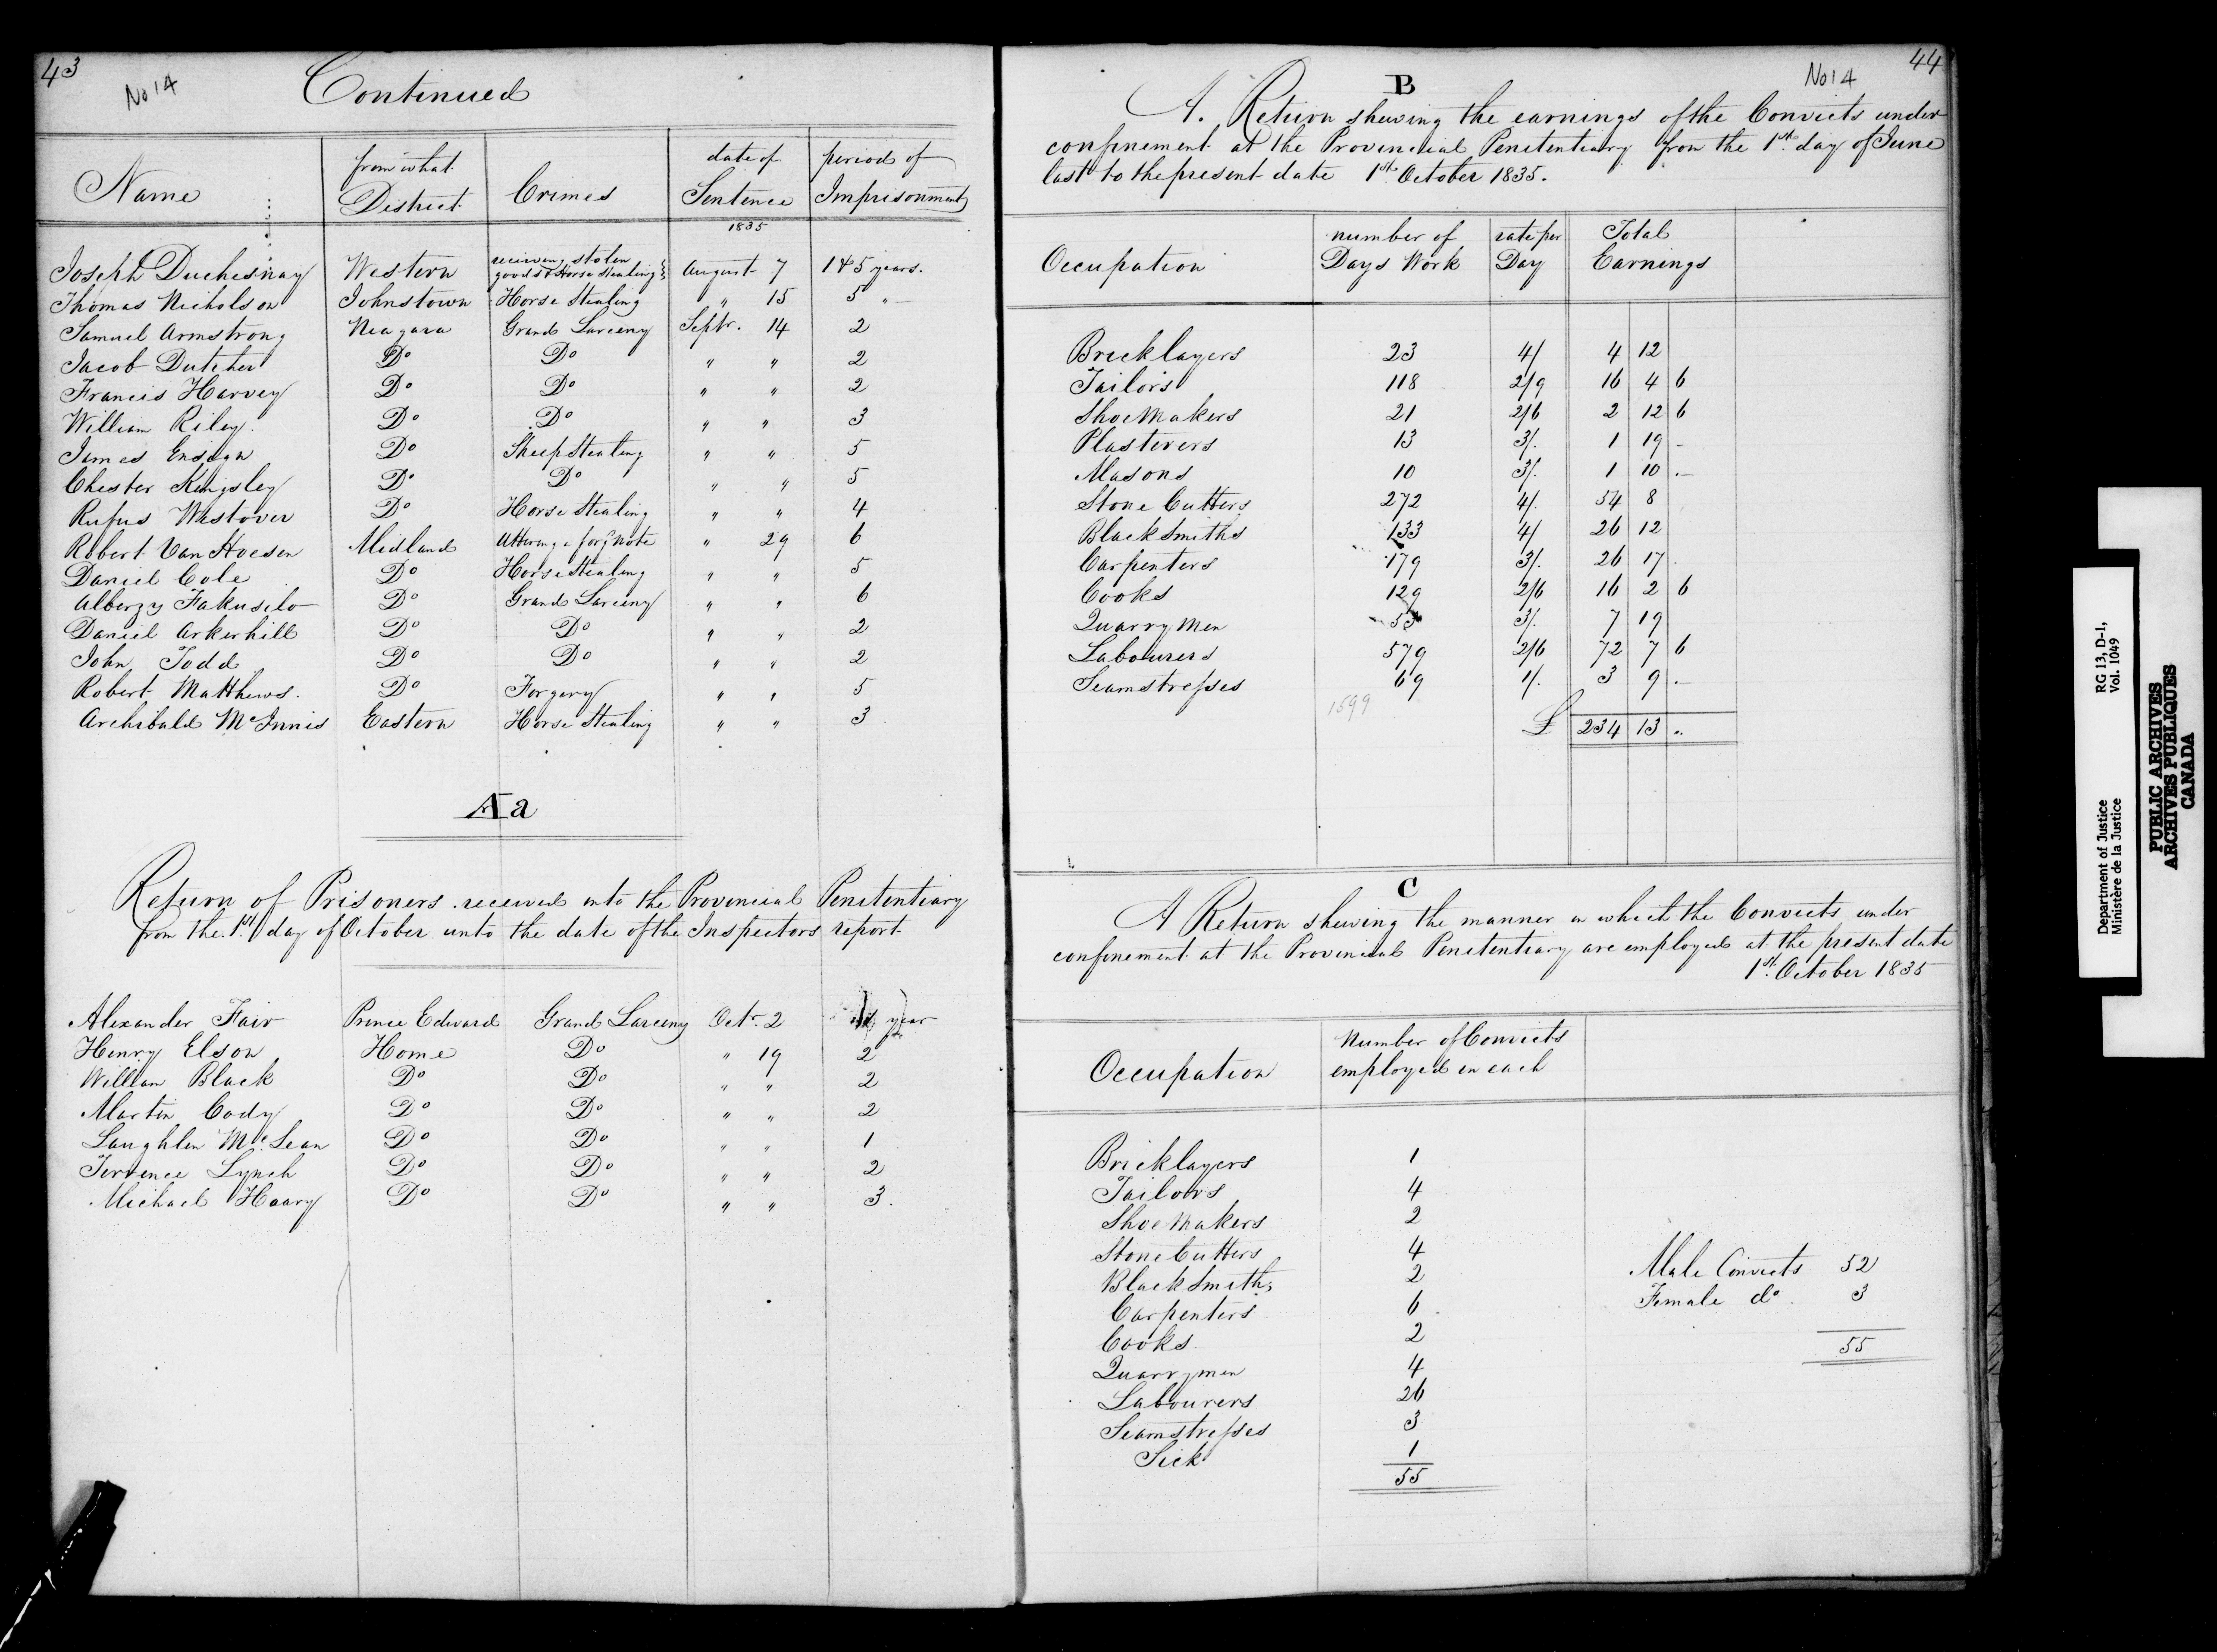 43
No 14
Continued
Name | from what District | Crimes | date of Sentence | period of Imprisonment
1835
Joseph Duchesnay | Western | receiving stolen goods & Horse Stealing | August 7 | 1 & 5 years.
Thomas Nicholson | Johnstown | Horse Stealing | " 15 | 5 "
Samuel Armstrong | Niagara | Grand Larceny | Septr. 14 | 2
Jacob Dutcher | Do | Do | " " | 2
Francis Harvey | Do | Do | " " | 2
William Riley. | Do | Do | " " | 3
James Ensign | Do | Sheep Stealing | " " | 5
Chester Kingsley | Do | Do | " " | 5
Rufus Westover | Do | Horse Stealing | " " | 4
Robert Van Hoesen | Midland | Uttering a forgd Note | " 29 | 6
Daniel Cole | Do | Horse Stealing | " " | 5
Do | Grand Larceny | " " | 6
Daniel Arkerhill | Do | Do | " " | 2
John Todd | Do | Do | " " | 2
Robert Matthews. | Do | Forgery | " " | 5
Archibald McInnis | Eastern | Horse Stealing | " " | 3
Aa
Return of Prisoners received into the Provincial Penitentiary
from the 1st day of October unto the date of the Inspectors report
Alexander Fair | Prince Edward | Grand Larceny | Octr. 2 | year
Henry Elson | Home | Do | " 19 | 2
William Black | Do | Do | " " | 2
Martin Cody | Do | Do | " " | 2
Laughlin McLean | Do | Do | " " | 1
Terrence Lynch | Do | Do | " " | 2
Michael Haary | Do | Do | " " | 3.
44
No 14
B
A. Return shewing the earnings of the Convicts under
confinement at the Provincial Penitentiary from the 1st day of June
last to the present date 1st October 1835.
Occupation | number of Days Work | rate per Day | Total Earnings
Bricklayers | 23 | 4/ | 4 | 12
Tailors | 118 | 2/9 | 16 | 4 | 6
ShoeMakers | 21 | 2/6 | 2 | 12 | 6
Plasterers | 13 | 3/. | 1 | 19 | -
Masons | 10 | 3/. | 1 | 10 | -
Stone Cutters | 272 | 4/. | 54 | 8
BlackSmiths | 133 | 4/ | 26 | 12
Carpenters | 179 | 3/. | 26 | 17
Cooks | 129 | 2/6 | 16 | 2 | 6
Quarry Men | 53 | 3/. | 7 | 19
Labourers | 579 | 2/6 | 72 | 7 | 6
Seamstresses | 69 | 1/. | 3 | 9 | -
1599
£ 234 | 13 | "
C
A Return shewing the manner in which the Convicts under
confinement at the Provincial Penitentiary are employed at the present date
1st October 1835
Occupation | Number of Convicts employed in each
Bricklayers | 1
Tailors | 4
Shoe Makers | 2
Stone Cutters | 4
Black Smiths | 2
Carpenters | 6
Cooks | 2
Quarrymen | 4
Labourers | 26
Seamstresses | 3
Sick | 1
55
Male Convicts 52
Female do. 3
55
Department of Justice
Ministère de la Justice
RG 13, D-1,
Vol. 1049
PUBLIC ARCHIVES
ARCHIVES PUBLIQUES
CANADA